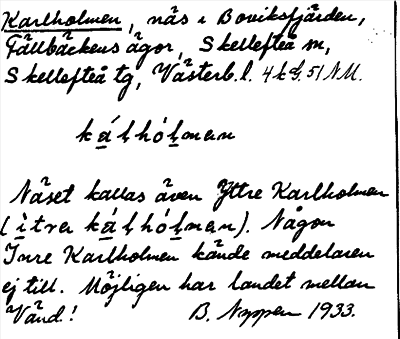 Karlholmen, näs i Boviksfjärden,
Fällbäckens ägor, Skellefteå sn,
Skellefteå tg, Västerb. l. 4 k℔. 51 NM.
ká̱ḻhól̲mæn
Näset kallas även Yttre Karlholmen
(i̱trer ká̱ḻhól̲mæn). Någon
Inre Karlholmen kände meddelaren
ej till. Möjligen har landet mellan
Vänd! B. Nyppen 1933.